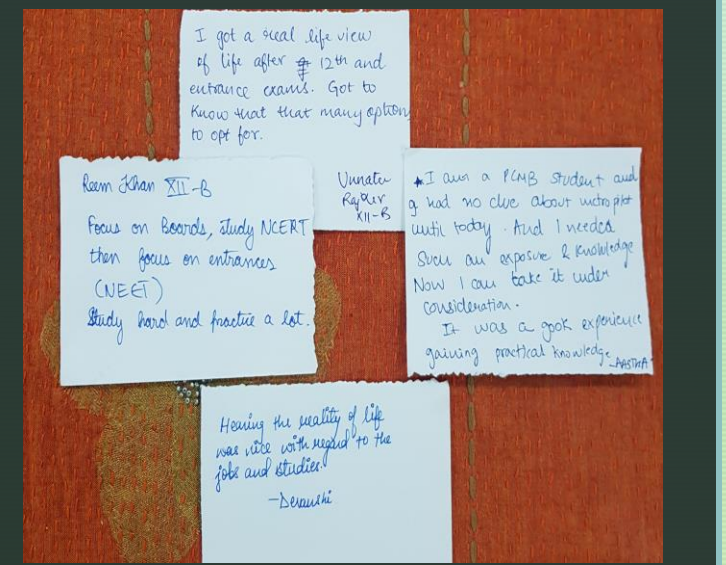 I got a real life view
of life after 12th and
entrance exams. Got to
know that that many option
to opt for.
Unnatee
XII-B
Reem Khan XII-B
Focus on Boards, study NCERT
then focus on entrances
(NEET)
Study hard and practice a lot.
I am a PCMB student and
I had no clue about
until today. And I needed
such an exposure & knowledge
Now I can take it under
consideration.
It was a gook experience
gaining practical knowledge
-AASTHA
Hearing the reality of life
was nice with regard to the
jobs and studies.
-Devanshi